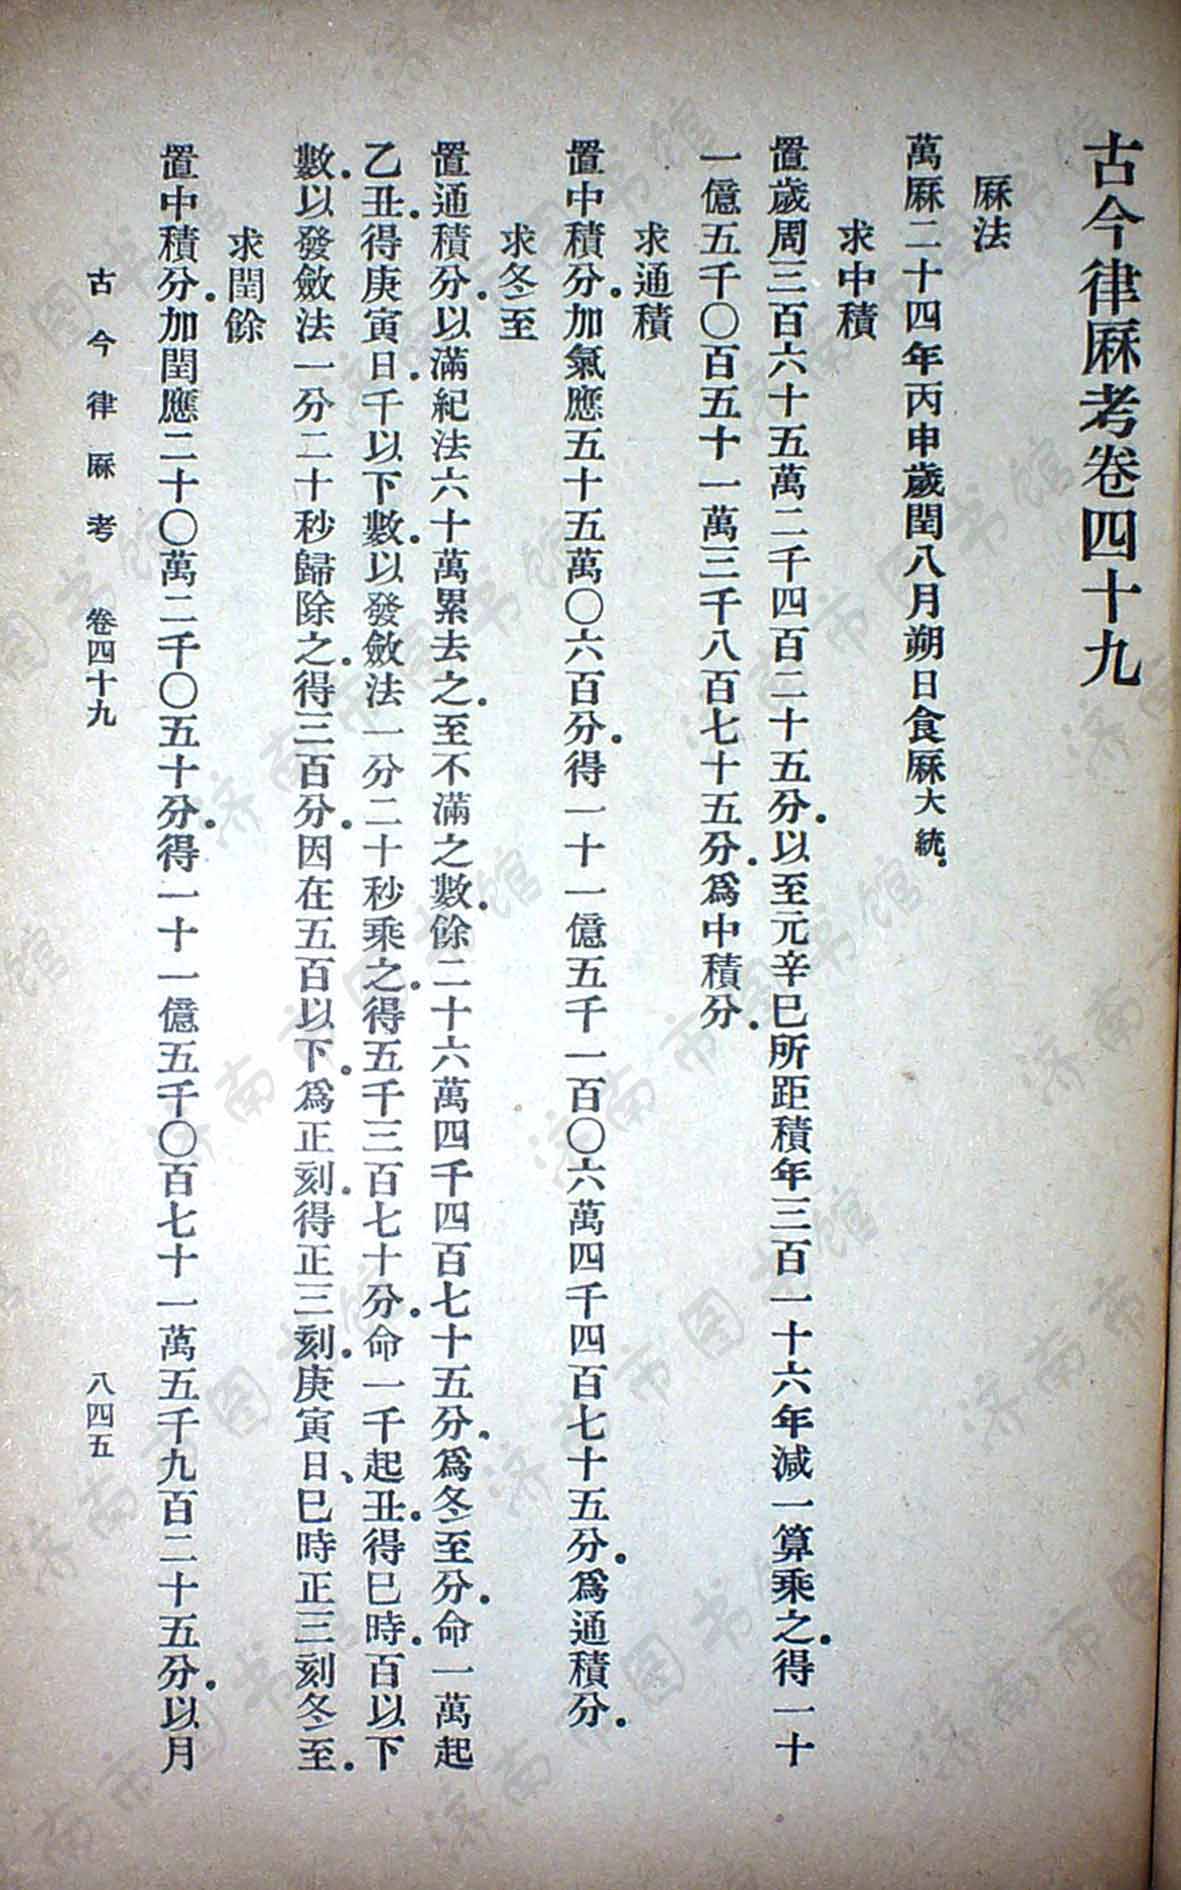 古今律厤考卷四十九
厤法
萬厤二十四年丙申歲閏八月朔日食厤大統。
求中積
置歲周三百六十五萬二千四百二十五分。以至元辛巳所距積年三百一十六年減一算乘之。得一十
一億五千〇百五十一萬三千八百七十五分。爲中積分。
求通積
置中積分。加氣應五十五萬〇六百分。得一十一億五千一百〇六萬四千四百七十五分。爲通積分。
求冬至
置通積分。以滿紀法六十萬累去之。至不滿之數。餘二十六萬四千四百七十五分。爲冬至分。命一萬起
乙丑。得庚寅日。千以下數。以發斂法一分二十秒乘之。得五千三百七十分。命一千起丑。得巳時。百以下
數。以發斂法一分二十秒歸除之。得三百分。因在五百以下。爲正刻。得正三刻。庚寅日、巳時正三刻冬至。
求閏餘
置中積分。加閏應二十〇萬二千〇五十分。得一十一億五千〇百七十一萬五千九百二十五分。以月
古今律厤考 卷四十九 八四五
济南市图书馆